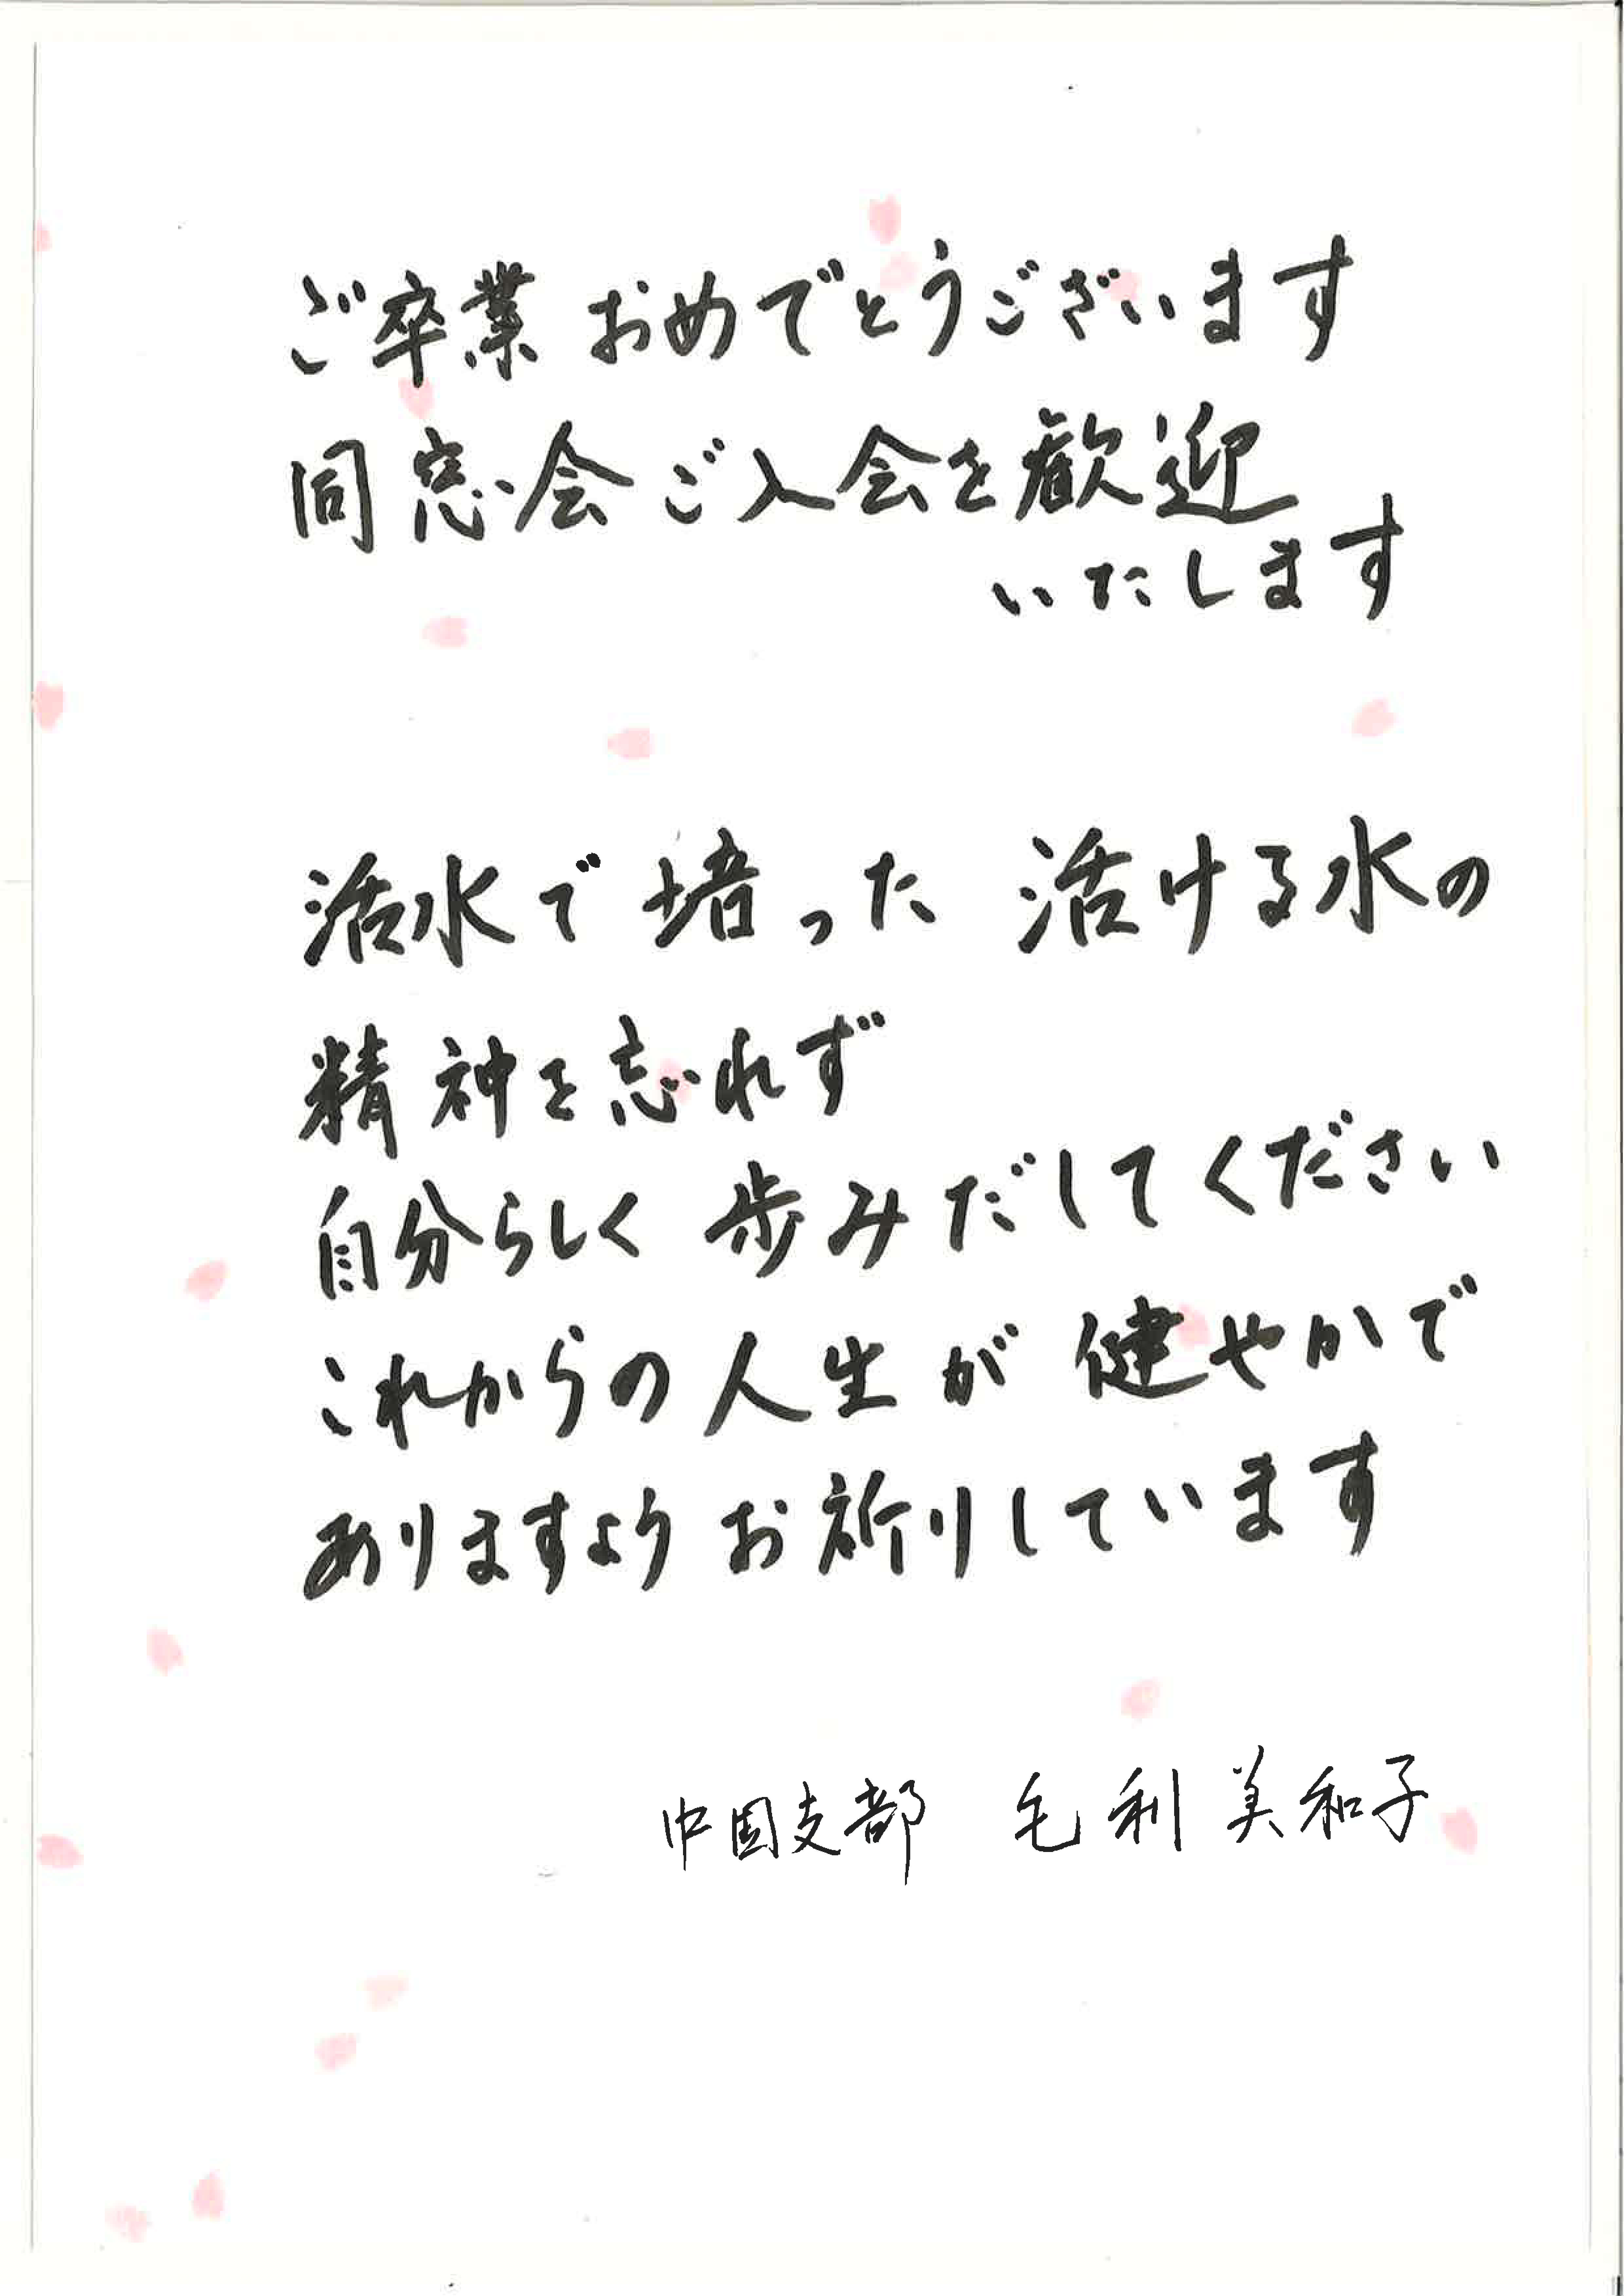 ご卒業 おめでとうございます
同窓会ご入会を歓迎
いたします
活水で 培った 活ける水の
精神を忘れず
自分らしく 歩みだしてください
これからの人生が 健やかで
ありますよう お祈りしています
中国支部 毛利美和子